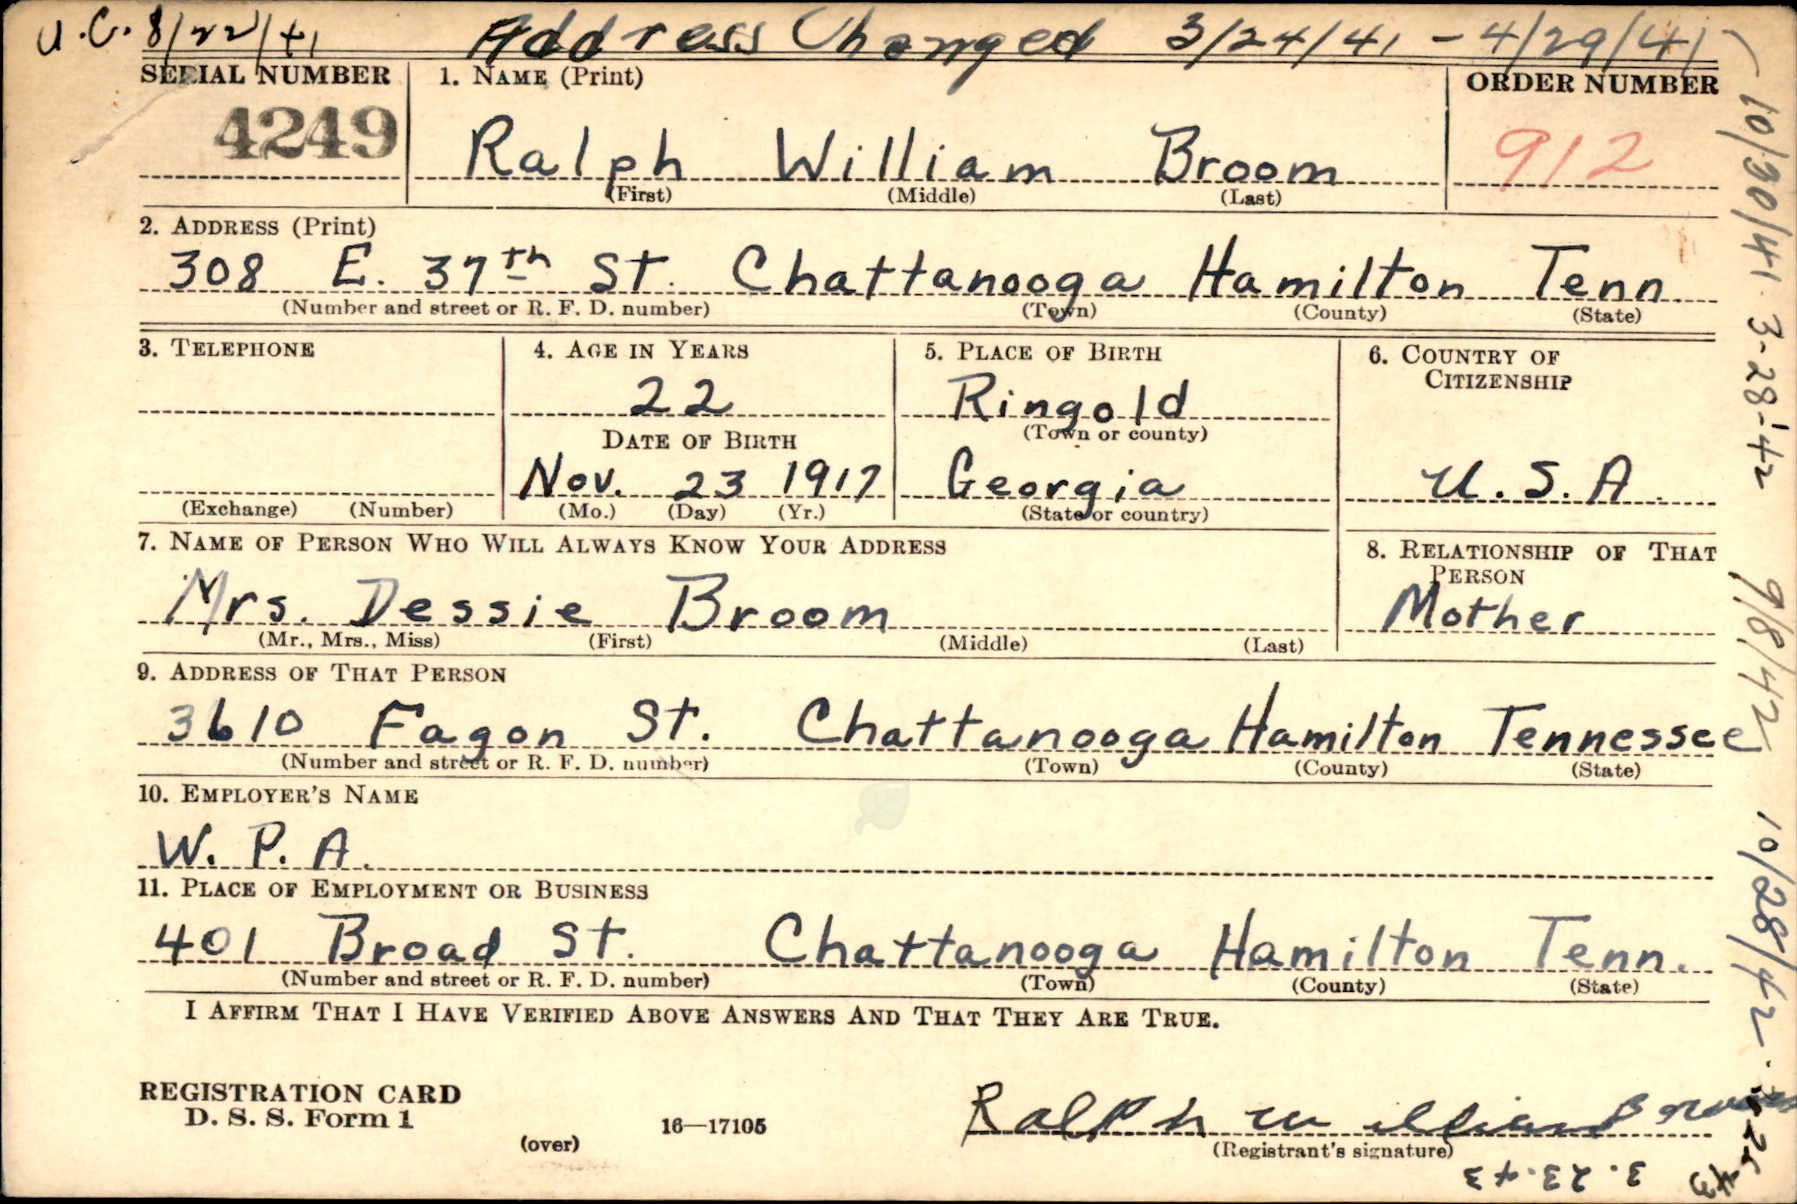 U.C. 8/22/41 Address Changed 3/24/41 - 4/29/41
SERIAL NUMBER 1. NAME (Print) ORDER NUMBER
4249 Ralph William Broom 912
(First) (Middle) (Last)
2. ADDRESS (Print)
308 E. 37th St. Chattanooga Hamilton Tenn
(Number and street or R. F. D. number) (Town) (County) (State)
3. TELEPHONE 4. AGE IN YEARS 5. PLACE OF BIRTH 6. COUNTRY OF
CITIZENSHIP
22 Ringold
DATE OF BIRTH (Town or county)
Nov. 23 1917 Georgia U.S.A.
(Exchange) (Number) (Mo.) (Day) (Yr.) (State or country)
7. NAME OF PERSON WHO WILL ALWAYS KNOW YOUR ADDRESS 8. RELATIONSHIP OF THAT
PERSON
Mrs. Dessie Broom Mother
(Mr., Mrs., Miss) (First) (Middle) (Last)
9. ADDRESS OF THAT PERSON
3610 Fagon St. Chattanooga Hamilton Tennessee
(Number and street or R. F. D. number) (Town) (County) (State)
10. EMPLOYER'S NAME
W. P. A.
11. PLACE OF EMPLOYMENT OR BUSINESS
401 Broad St. Chattanooga Hamilton Tenn.
(Number and street or R. F. D. number) (Town) (County) (State)
I AFFIRM THAT I HAVE VERIFIED ABOVE ANSWERS AND THAT THEY ARE TRUE.
REGISTRATION CARD
D. S. S. Form 1
(over) 16—17105
Ralph William Broom
(Registrant's signature)
10/30/41 3-28-42 9/8/42 10/28/42
3.23.43